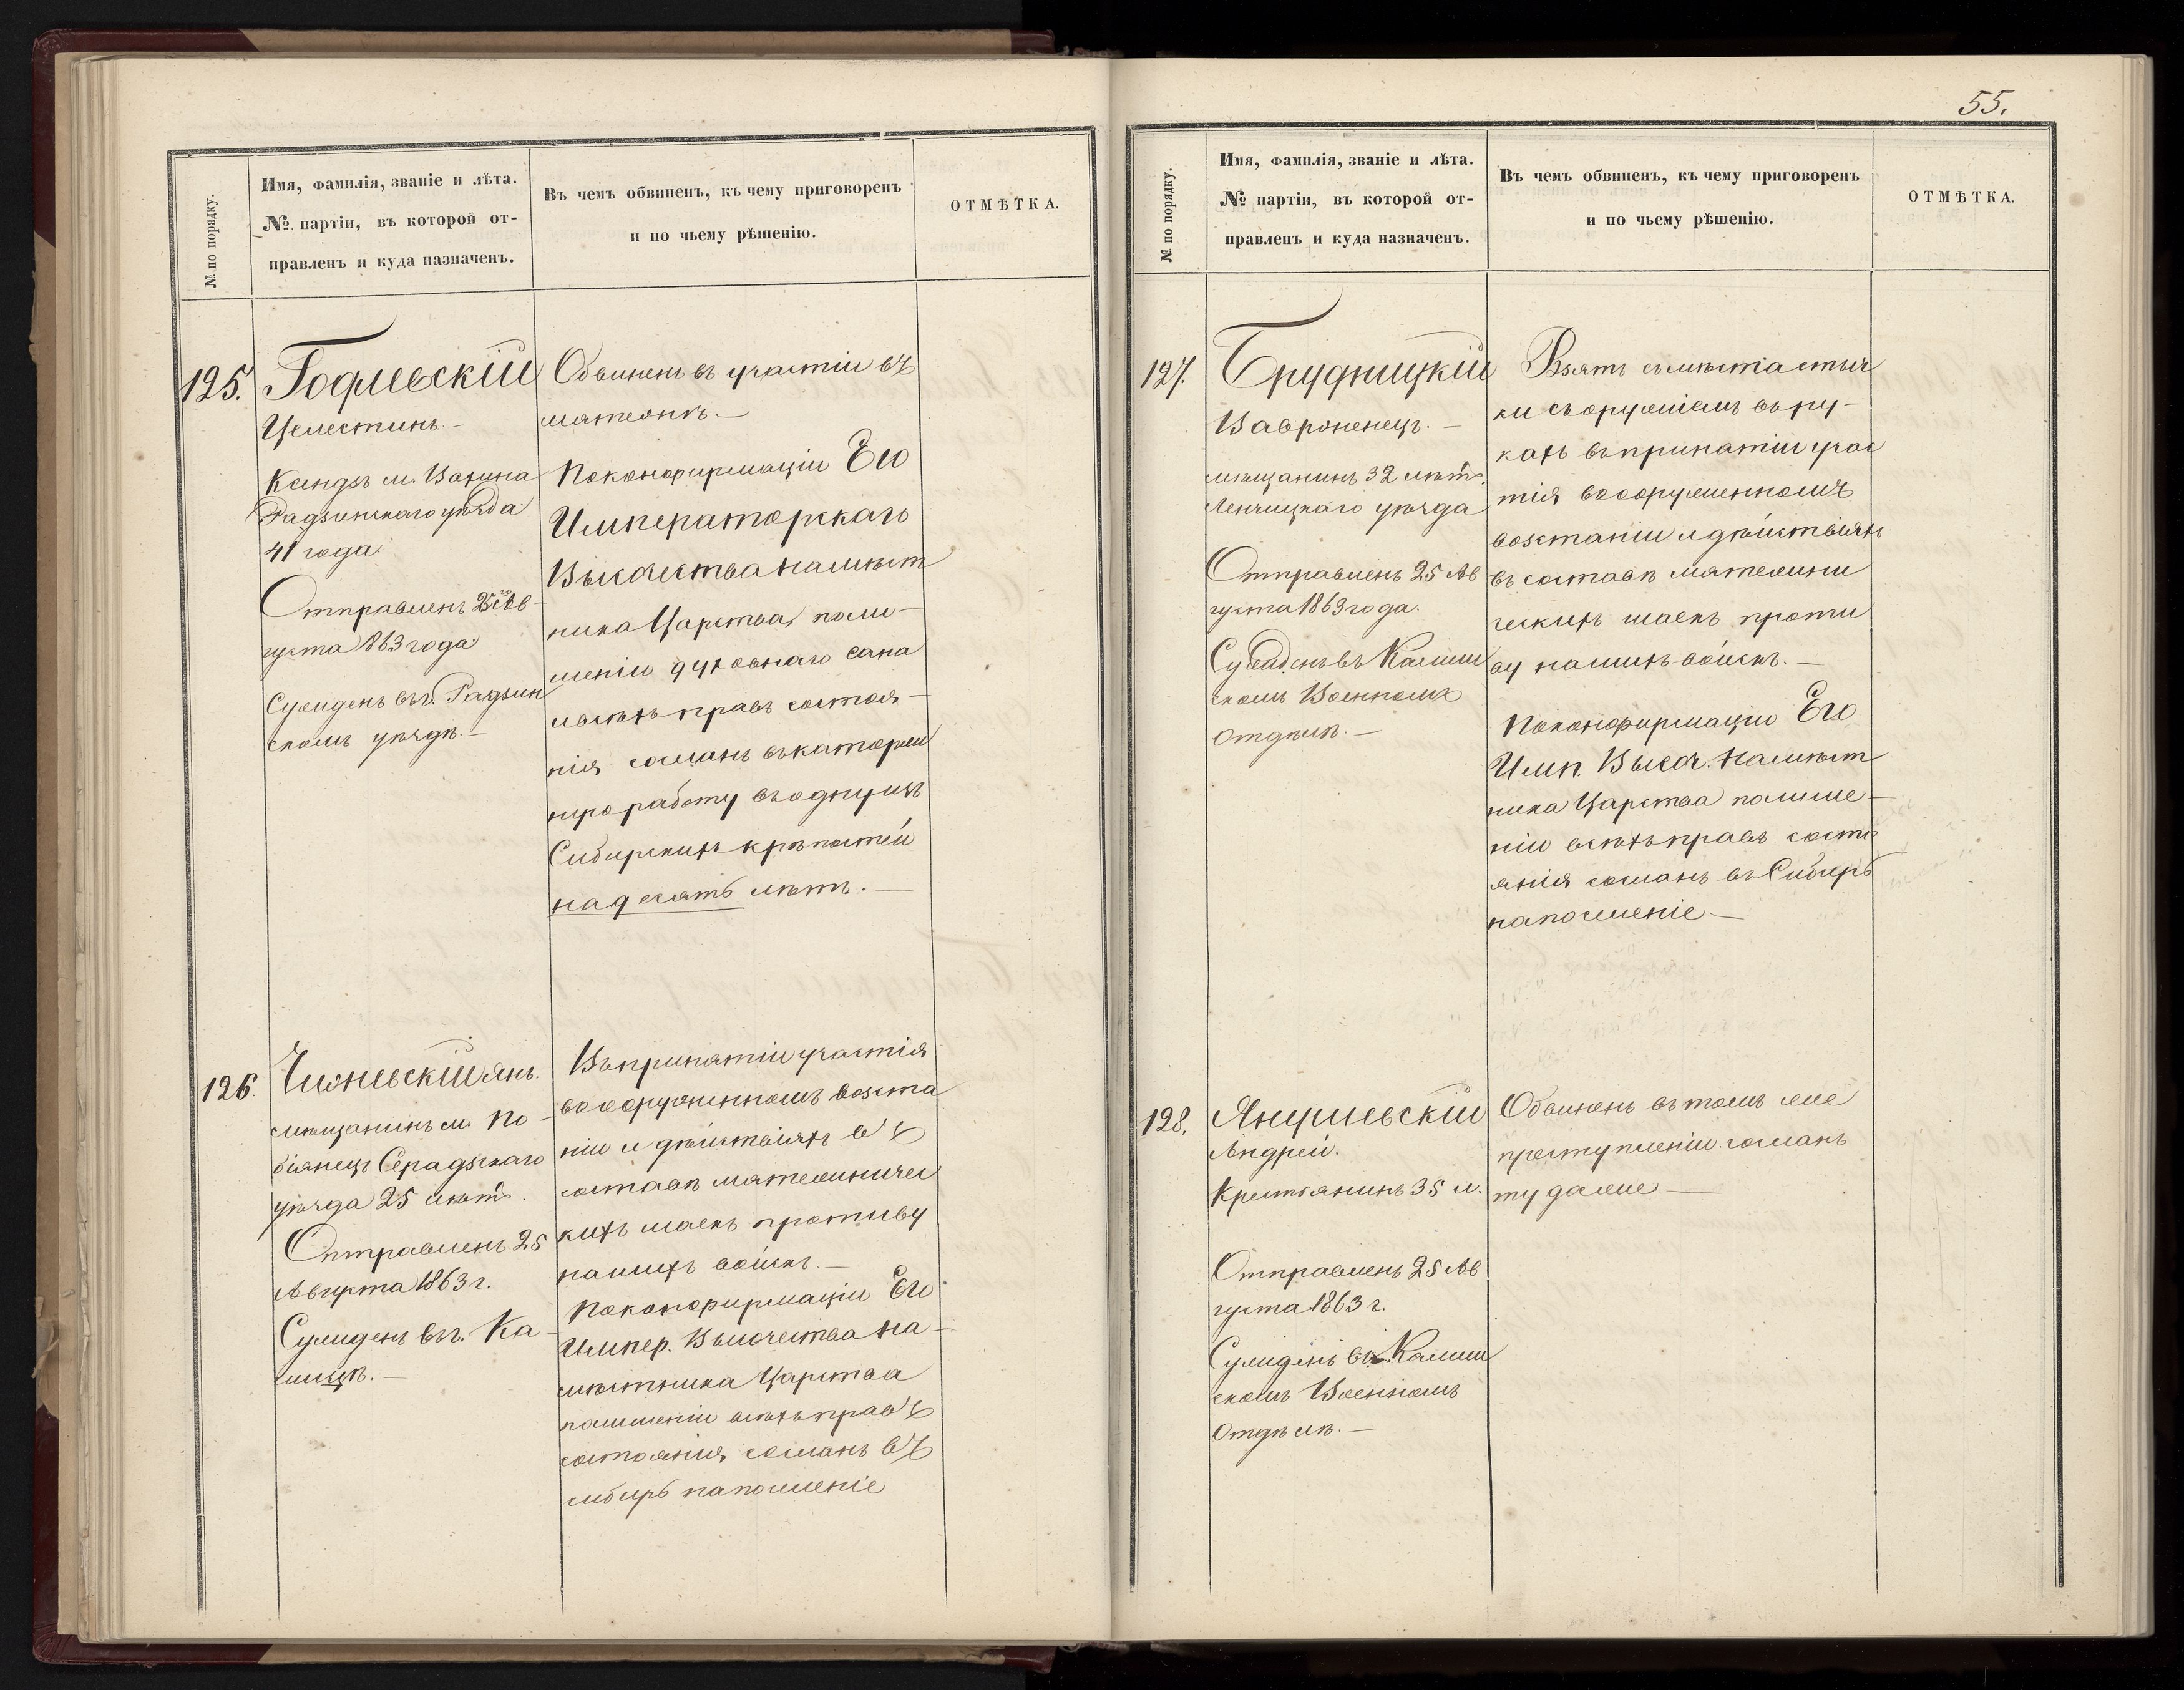 № по порядку.
Имя, фамилія, званіе и лѣта.
№ партіи, въ которой от-
правленъ и куда назначенъ.
Въ чемъ обвиненъ, къ чему приговоренъ
и по чьему рѣшенію.
ОТМѢТКА.
125.
Целестинъ.-
Ксендзъ м.
Радзинскаго уѣзда
41 года
Отправленъ 25 Ав-
густа 1863 года
Сужденъ въ г. Радзин
скомъ уѣздѣ.-
Обвиненъ въ участіи въ
мятежѣ.-
По конфирмаціи Его
Императорскаго
Высочества Намѣст
ника Царства, по ли-
шеніи духовнаго сана
и всѣхъ правъ состоя-
нія сосланъ въ каторж
ную работу въ одну изъ
Сибирскихъ крѣпостей
на десять лѣтъ.-
126.
Чижевскій Янъ.
мѣщанинъ м. По-
біянецъ Серадзскаго
уѣзда 25 лѣтъ.
Отправленъ 25
Августа 1863 г.
Сужденъ въ г. Ка-
лишѣ.-
Въ принятіи участія
въ вооруженномъ возста
ніи и дѣйствіяхъ въ
составѣ мятежничес
кихъ шаекъ противу
нашихъ войскъ.-
По конфирмаціи Его
Импер. Высочества На-
мѣстника Царства
по лишеніи всѣхъ правъ
состоянія сосланъ въ
сибирь на поселеніе
55.
№ по порядку.
Имя, фамилія, званіе и лѣта.
№ партіи, въ которой от-
правленъ и куда назначенъ.
Въ чемъ обвиненъ, къ чему приговоренъ
и по чьему рѣшенію.
ОТМѢТКА.
127.
Брудницкій
Вавроненецъ.-
мѣщанинъ 32 лѣтъ.
Ленчицкаго уѣзда
Отправленъ 25 Ав
густа 1863 года.
Сужденъ въ Калиш
скомъ Военномъ
Отдѣлѣ.-
Взятъ съ мѣста стыч
ки съ оружіемъ въ ру-
кахъ въ принатіи учас
тія въ вооруженномъ
возстаніи и дѣйствіяхъ
въ составѣ мятежни
ческихъ шаекъ проти
ву нашихъ войскъ.-
По конфирмаціи Его
Имп. Высоч. Намѣст
ника Царства по лише-
ніи всѣхъ правъ состо
янія сосланъ въ Сибирь
на поселеніе-
128.
Андрей.
Крестьянинъ 35 л.
Отправленъ 25 Ав
густа 1863 г.
Сужденъ въ Калиш
скомъ Военномъ
Отдѣлѣ.-
Обвиненъ въ томъ же
преступленіи. сосланъ
туда же-